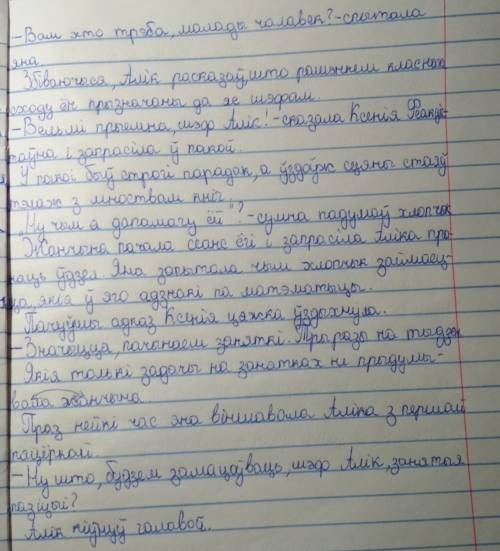 -Вам хто трэба, малады чалавек?-спытала
яна.
Збіваючыся, Алік расказаў, што рашэннем класнага
сходу ён прызначаны да яе шэфам.
-Вельмі прыемна, шэф Алік!-сказала Ксенія
раўна і запрасіла ў пакой.
У пакоі быў строгі парадак, а ўздоўж сцяны стаяў
тэлаж з мноствам кніг.
„Ну чым я дапамагу ёй"?-сумна падумаў хлопчык
Жанчына пачала сеанс ёгі і запрасіла Аліка пры-
наць ўдзел. Яна запытала чым хлопчык займаец-
ца, якія ў яго адзнакі па матэматыцы.
Пачуўшы адказ Ксенія цяжка ўздыхнула.
-Значыцца, пачынаем заняткі. Тры разы на тыдзень
Якія толькі задачы на занятках не прыдумы-
вала жанчына
Праз нейкі час яна віншавала Аліка з першай
пацёркай.
-Ну што, будзем замацоўваць, шэф Алік, занятая
пазіцыі?
Алік кіўнуў галавой.